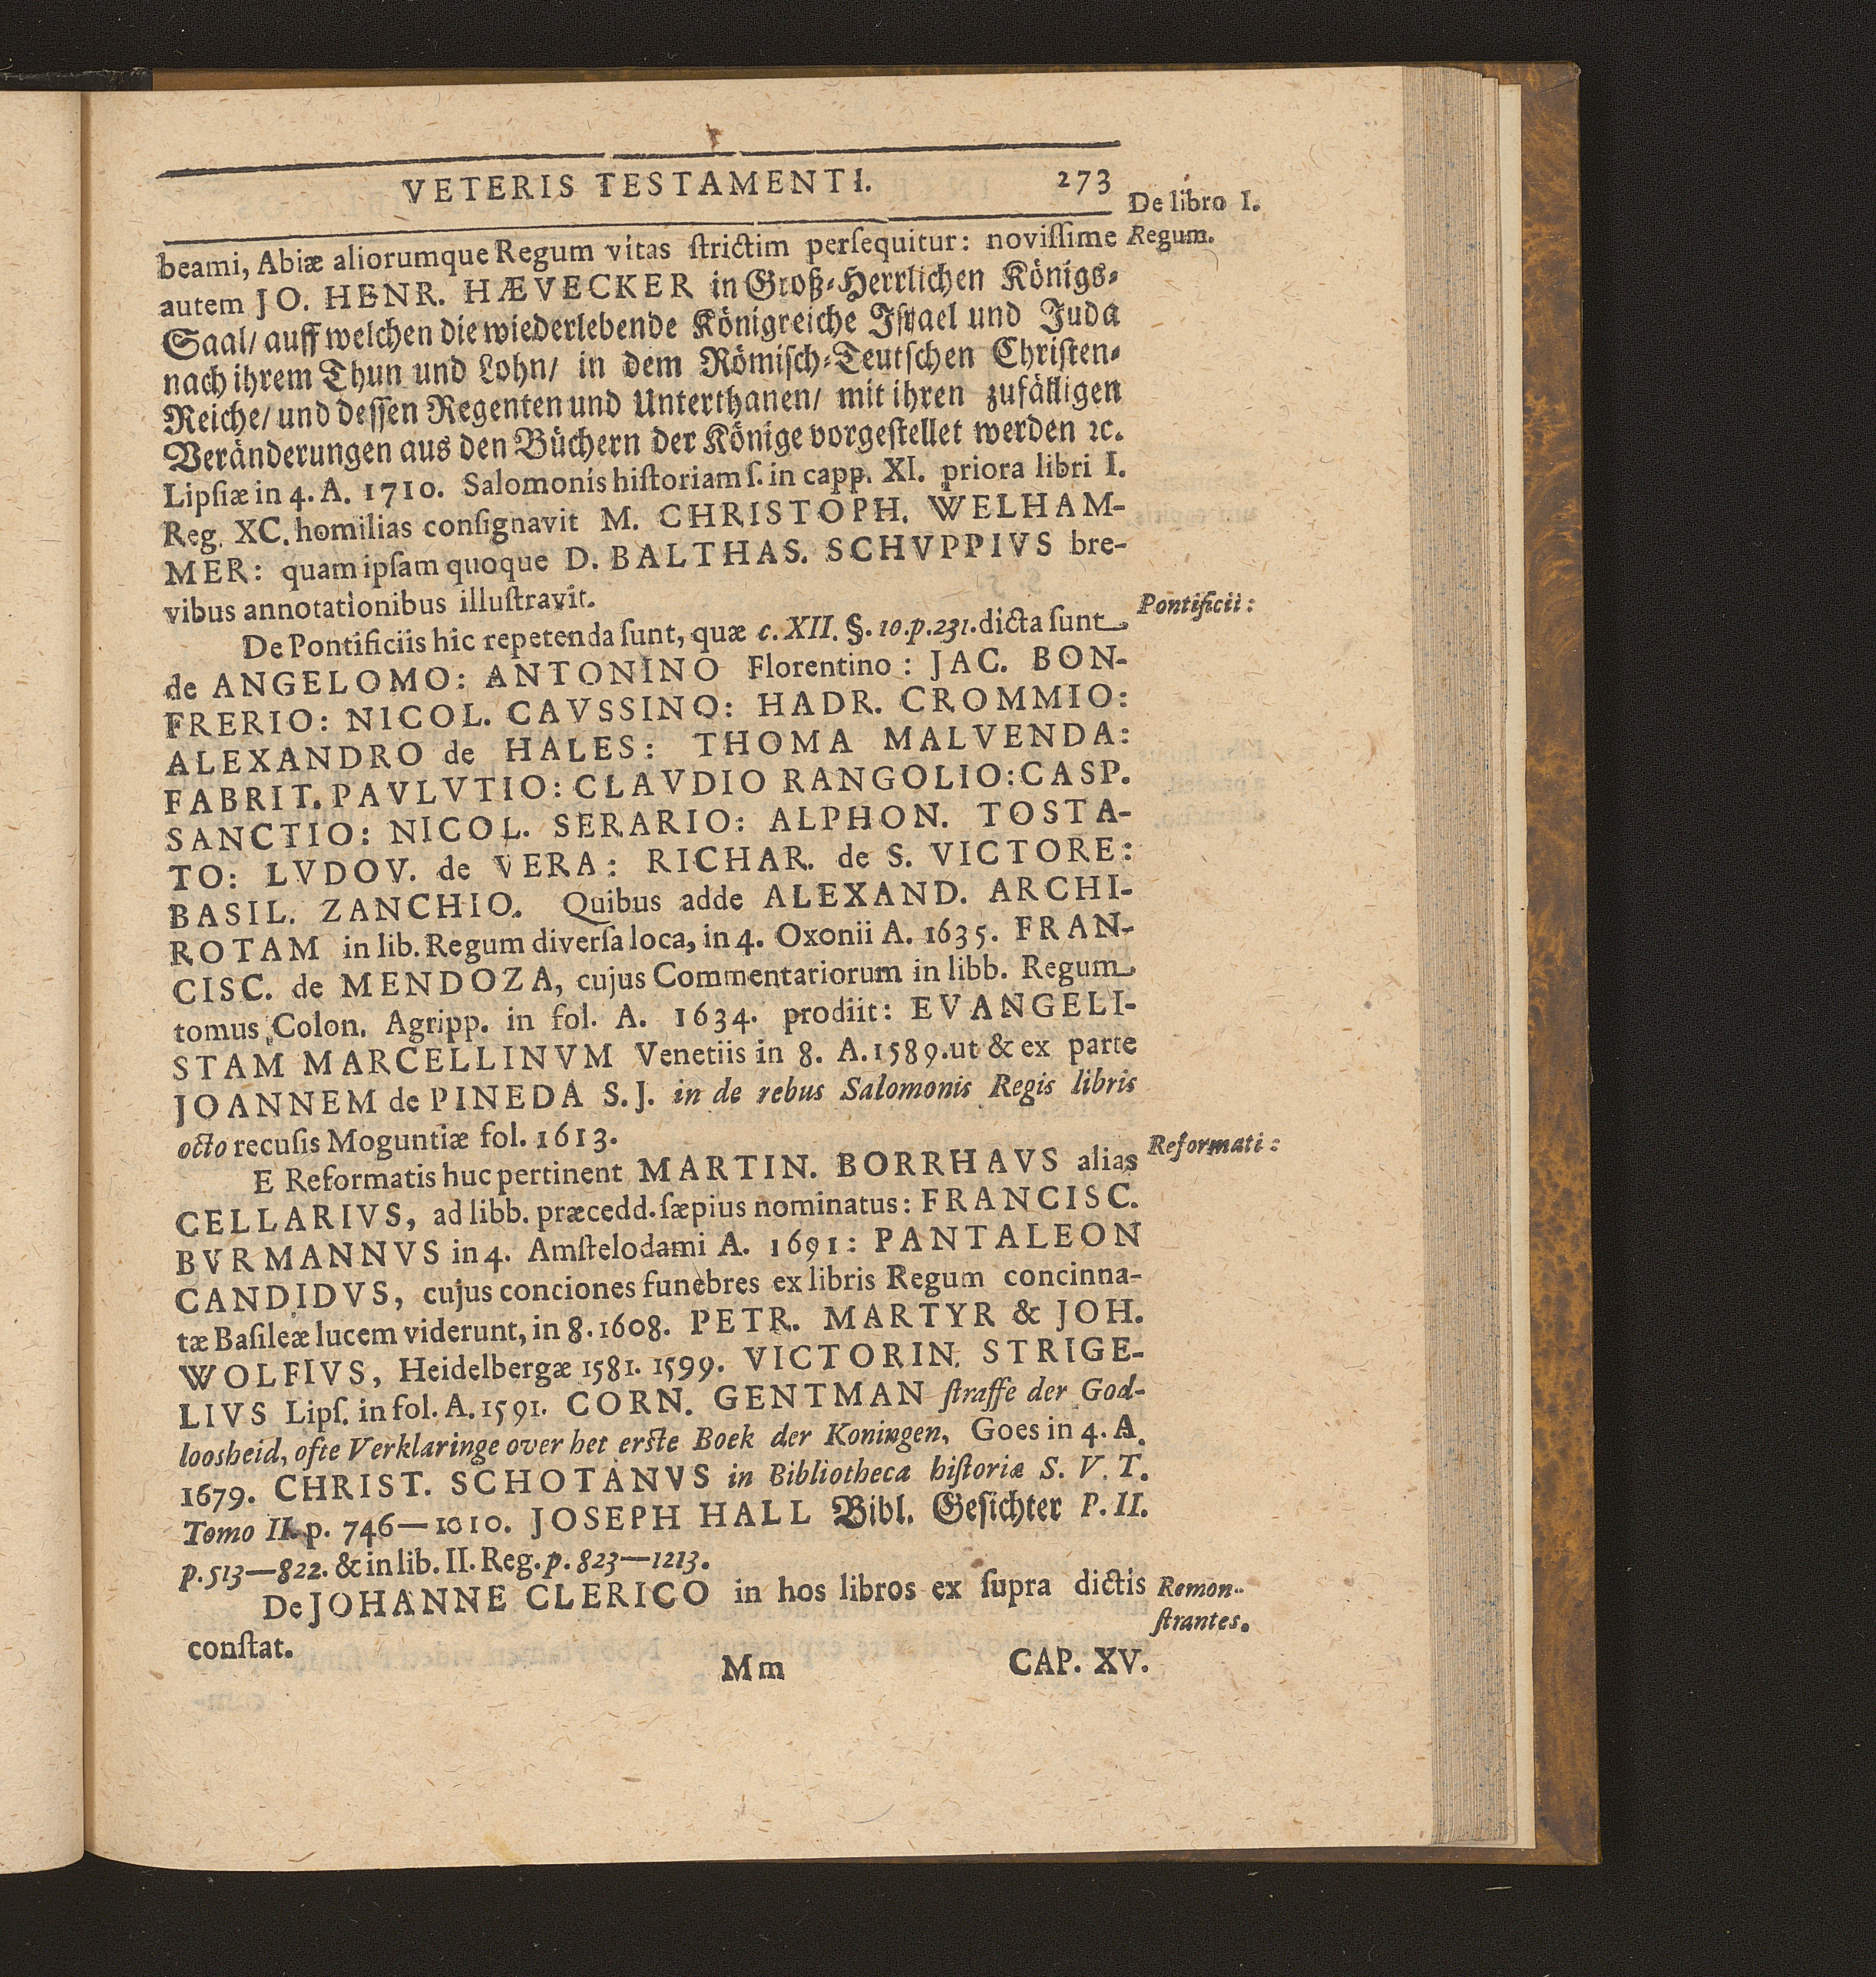 VETERIS TESTAMENTI. 273
De libro I.
Regum.
beami, Abiæ aliorumque Regum vitas ſtrictim perſequitur: noviſſime
autem JO. HENR. HÆVECKER in Groß-Herrlichen Königs-
Saal/ auff welchen die wiederlebende Königreiche Iſrael und Juda
nach ihrem Thun und Lohn/ in dem Römiſch-Teutſchen Chriſten-
Reiche/ und deſſen Regenten und Unterthanen/ mit ihren zufälligen
Veränderungen aus den Büchern der Könige vorgeſtellet werden ꝛc.
Lipſiæ in 4. A. 1710. Salomonis hiſtoriam ſ. in capp. XI. priora libri I.
Reg. XC. homilias conſignavit M. CHRISTOPH. WELHAM-
MER: quam ipſam quoque D. BALTHAS. SCHVPPIVS bre-
vibus annotationibus illuſtravit.
Pontificii:
De Pontificiis hic repetenda ſunt, quæ c. XII. §. 10. p. 231. dicta ſunt
de ANGELOMO: ANTONINO Florentino: JAC. BON-
FRERIO: NICOL. CAVSSINO: HADR. CROMMIO:
ALEXANDRO de HALES: THOMA MALVENDA:
FABRIT. PAVLVTIO: CLAVDIO RANGOLIO: CASP.
SANCTIO: NICOL. SERARIO: ALPHON. TOSTA-
TO: LVDOV. de VERA: RICHAR. de S. VICTORE:
BASIL. ZANCHIO. Quibus adde ALEXAND. ARCHI-
ROTAM in lib. Regum diverſa loca, in 4. Oxonii A. 1635. FRAN-
CISC. de MENDOZA, cujus Commentariorum in libb. Regum
tomus Colon. Agripp. in fol. A. 1634. prodiit: EVANGELI-
STAM MARCELLINVM Venetiis in 8. A. 1589. ut & ex parte
JOANNEM de PINEDA S. J. in de rebus Salomonis Regis libris
octo recuſis Moguntiæ fol. 1613.
Reformati:
E Reformatis huc pertinent MARTIN. BORRHAVS alias
CELLARIVS, ad libb. præcedd. ſæpius nominatus: FRANCISC.
BVRMANNVS in 4. Amſtelodami A. 1691: PANTALEON
CANDIDVS, cujus conciones funebres ex libris Regum concinna-
tæ Baſileæ lucem viderunt, in 8. 1608. PETR. MARTYR & JOH.
WOLFIVS, Heidelbergæ 1581. 1599. VICTORIN. STRIGE-
LIVS Lipſ. in fol. A. 1591. CORN. GENTMAN ſtraffe der God-
loosheid, ofte Verklaringe over het erſte Boek der Koningen, Goes in 4. A.
1679. CHRIST. SCHOTANVS in Bibliotheca hiſtoriæ S. V. T.
Tomo II. p. 746—1010. JOSEPH HALL Bibl. Geſichter P. II.
p. 513—822. & in lib. II. Reg. p. 823—1213.
De JOHANNE CLERICO in hos libros ex ſupra dictis
Remon-
ſtrantes.
conſtat.
Mm CAP. XV.